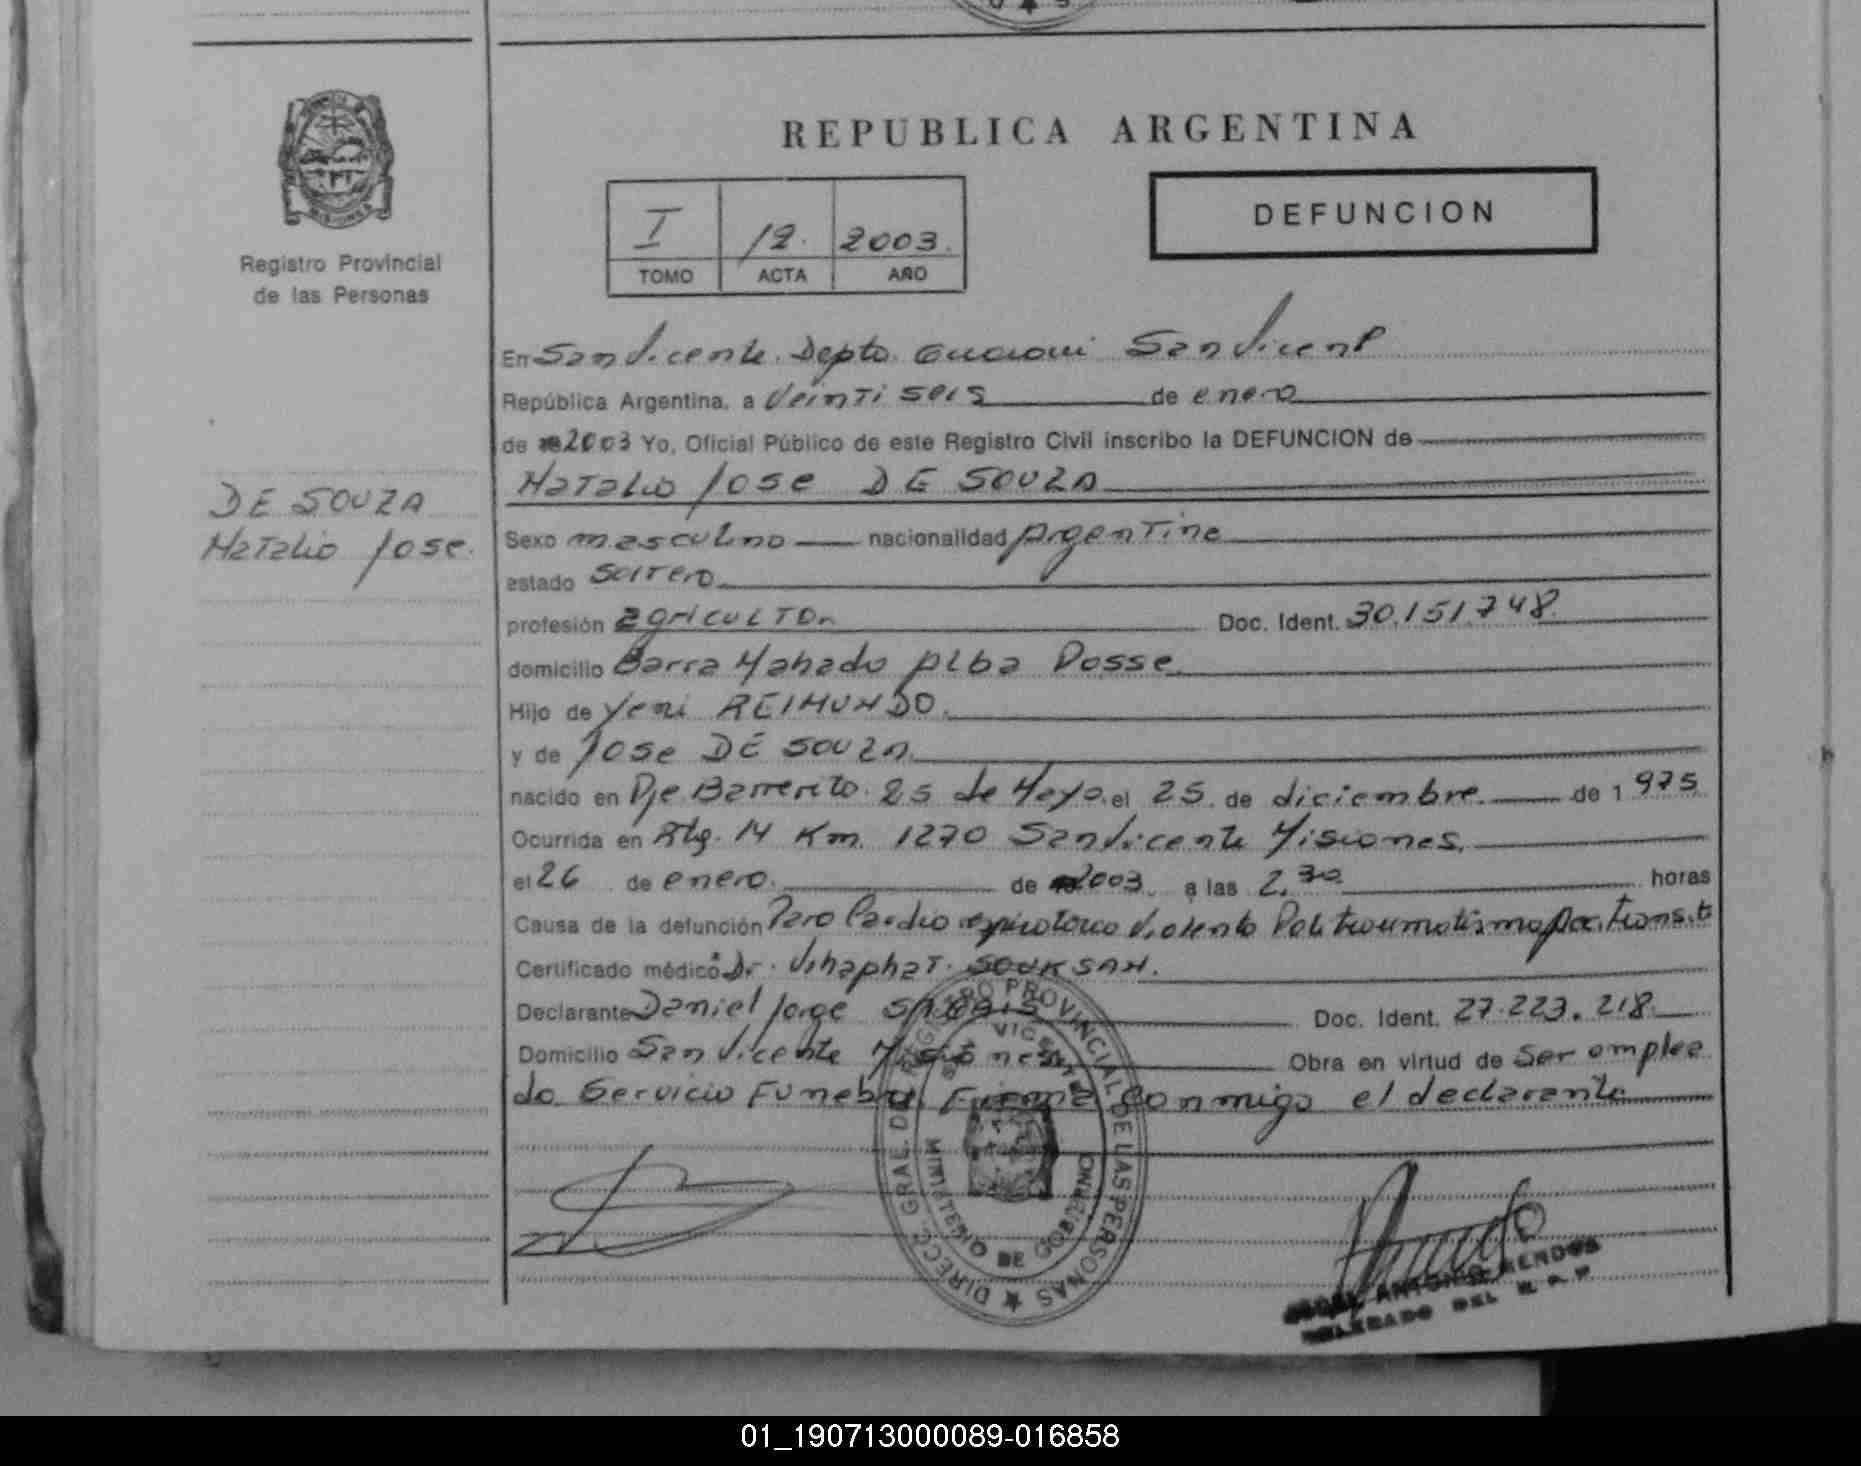 REPUBLICA ARGENTINA
DEFUNCION
I 12. 2003.
TOMO ACTA AÑO
MISIONES
Registro Provincial
de las Personas
DE SOUZA
Natalio Jose.
En San Vicente Depto. Guarani San Vicente
República Argentina, a Veinti seis de enero
de 2003 Yo, Oficial Público de este Registro Civil inscribo la DEFUNCION de
Natalio Jose DE SOUZA
Sexo masculino nacionalidad Argentine
estado soltero
profesión agricultor Doc. Ident. 30.151.748.
domicilio Barra Alba Posse.
Hijo de Yeni REIMUNDO.
y de Jose DE SOUZA.
nacido en Pje. Barrerito. 25 de Mayo. el 25. de diciembre. de 1 975
Ocurrida en Km. 1270 San Vicente Misiones.
el 26 de enero. de 2003. a las 2.30 horas
Causa de la defunción Paro Cardio respiratorio Violento Politraumatismo Acc. Transito
Certificado médico Dr. Vihaphat. SOUKSAN.
Declarante Daniel Jorge Doc. Ident. 27.223.218.
Domicilio San Vicente Misiones. Obra en virtud de ser emplea
do Servicio Funebre. Firma conmigo el declarante
DIRECC. GRAL. DEL REGISTRO PROVINCIAL DE LAS PERSONAS
SAN VICENTE
MINISTERIO DE GOBIERNO
ANTONIO
DELEGADO DEL R. P. P.
01_190713000089-016858